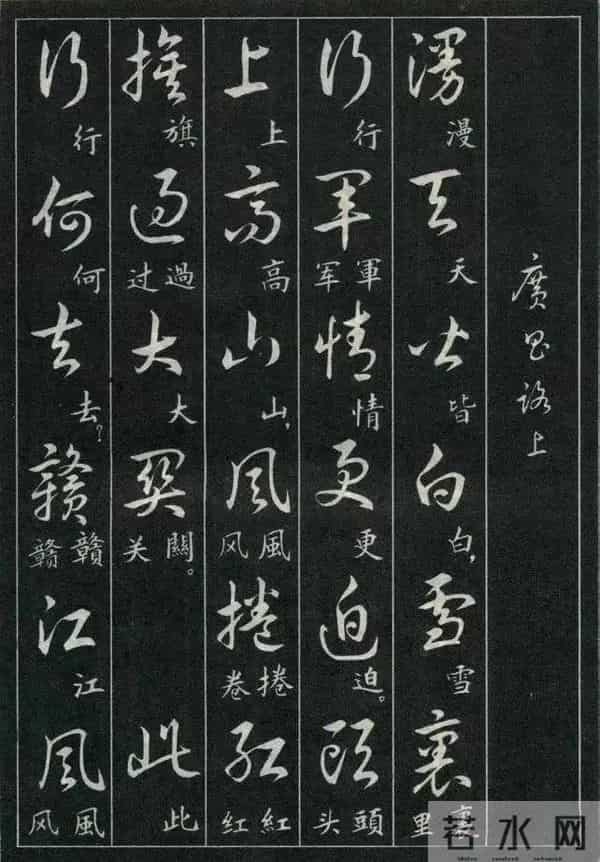 廣昌路上
漫天皆白雪裏
漫天皆白,雪裏
里
行軍情更迫頭
行軍情更迫。頭
军头
上高山風捲紅
上高山,風捲紅
风卷红
旗過大關此
旗過大關。此
过关
行何去贛江風
行何去?贛江風
赣风
若水网